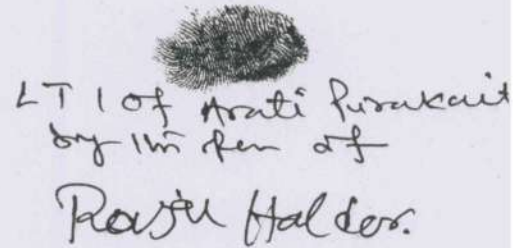 LTI of Arati Purakait
by the pen of
Raju Halder.